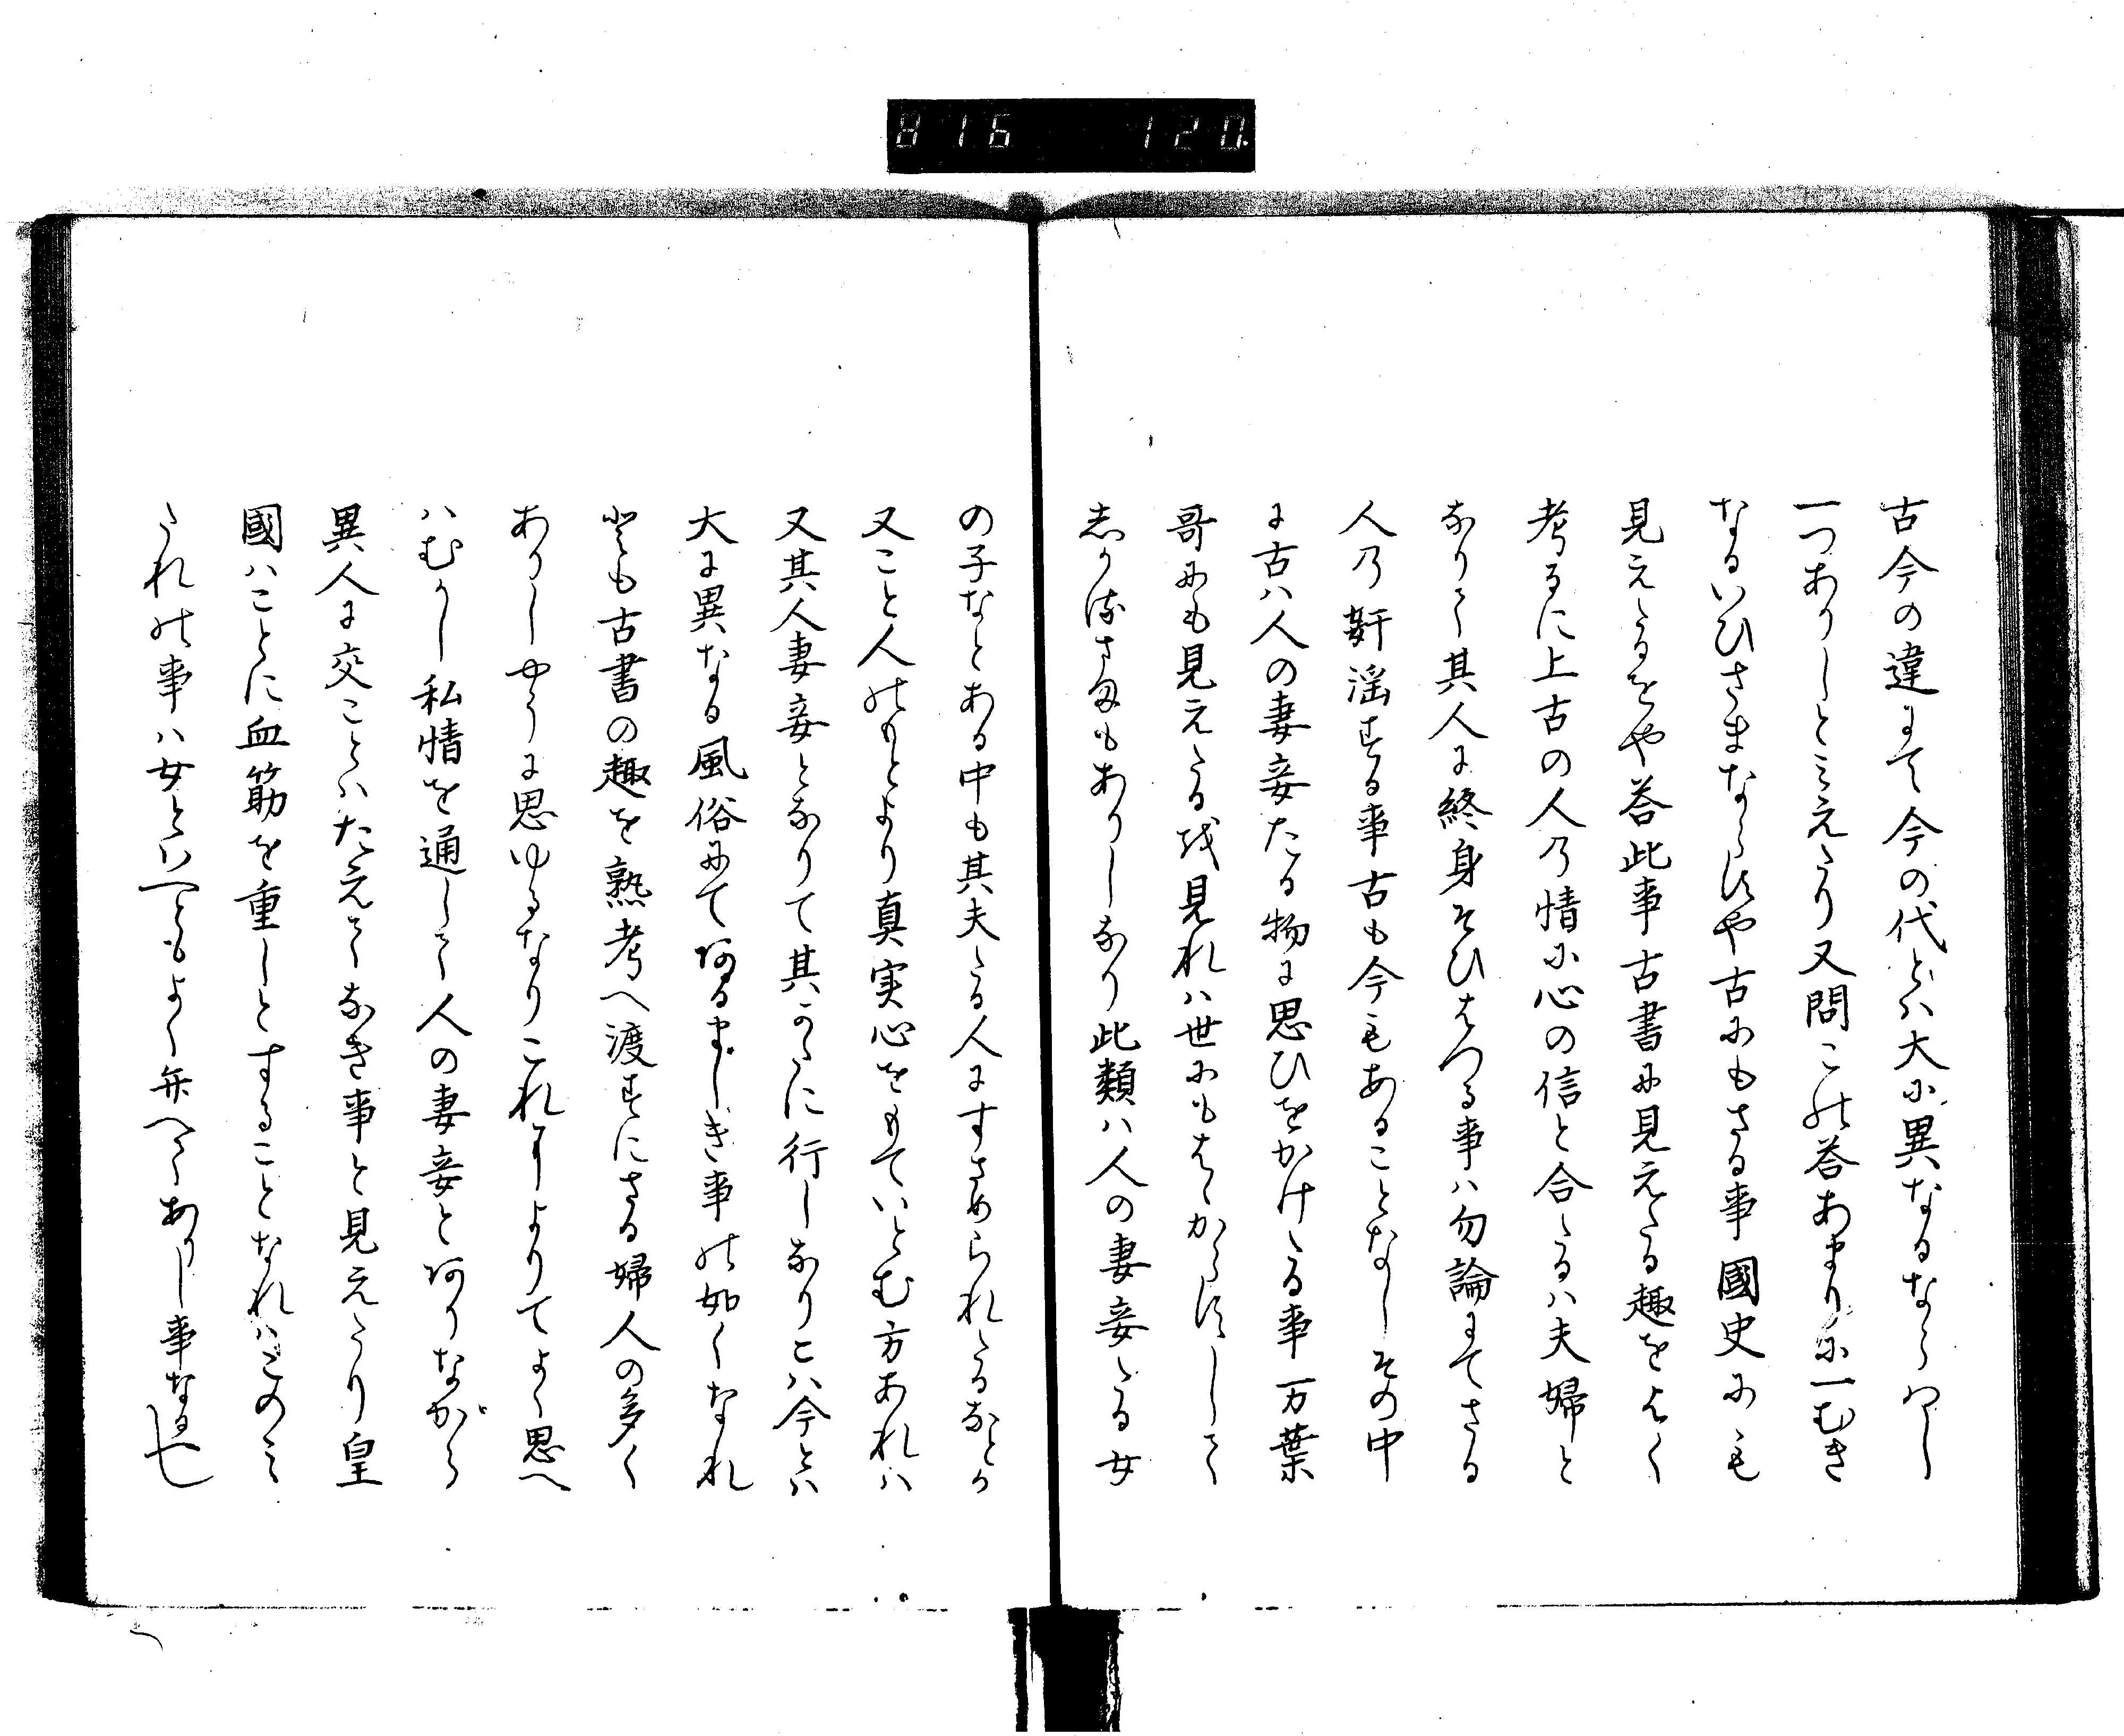 816 120.
古今の違にて今の代とは大に異なるならはし
一つありしとみえたり又問この答あまりに一むき
なるいひさまならすや古にもさる事國史にも
見えたるをや答此事古書に見えたる趣をよく
考るに上古の人乃情に心の信と合たるは夫婦と
なりて其人に終身そひはつる事は勿論にてさる
人乃姧滛する事古も今もあることなしその中
に古は人の妻妾たる物に思ひをかけたる事万葉
哥にも見えたる我見れは世にもはゝからすして
しかせさるもありしなり此類は人の妻妾たる女
の子なとある中も其夫たる人にすさめられたるなとか
又こと人のもとより真実心をもていとむ方あれは
又其人妻妾となりて其かたに行しなりこは今とは
大に異なる風俗にてあるましき事の如くなれ
とも古書の趣を熟考へ渡すにさる婦人の多く
ありしやうに思ゆるなりこれによりてよく思へ
はむかし私情を通して人の妻妾とありながら
異人に交ことはたえてなき事と見えたり皇
國はことに血筋を重しとすることなれはこのみ
たれの事は女といへともよく弁へてありし事なる也